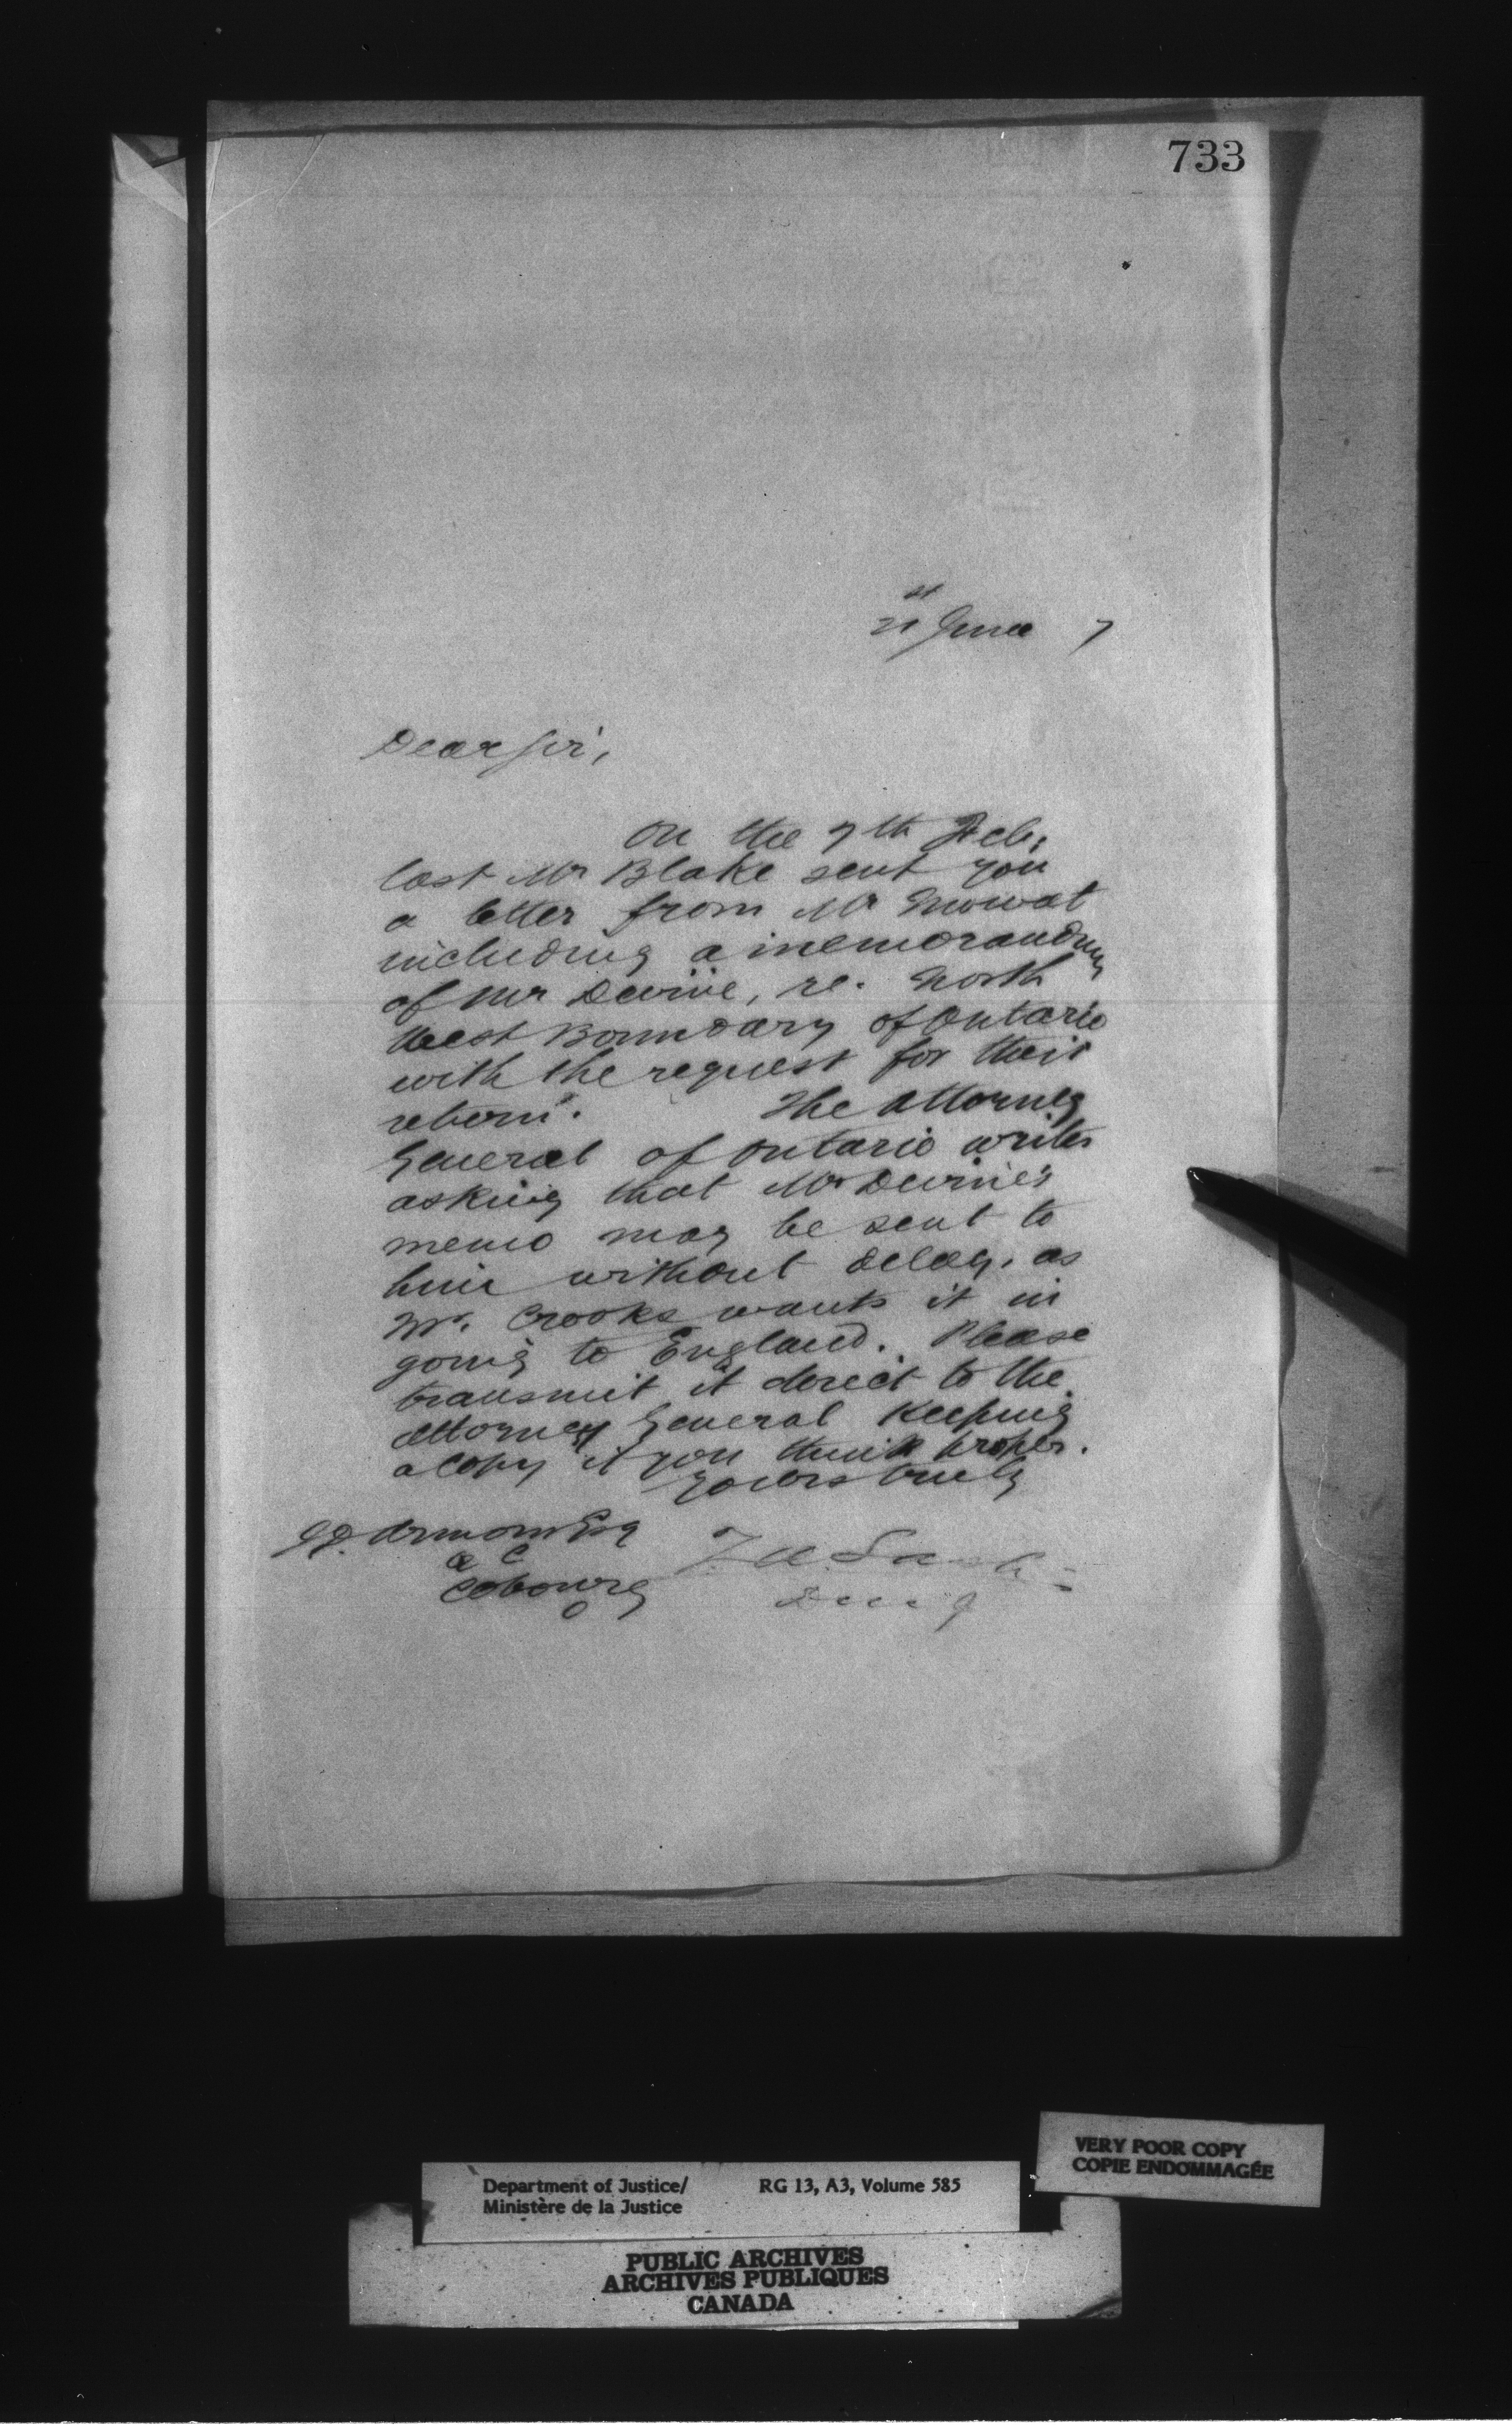 733
21st June 7
Dear Sir,
On the 7th Feb:
last Mr Blake sent you
a letter from Mr Mowat
including a memorandum
of Mr Devine, re. North
West Boundary of Ontario
with the request for their
return. The Attorney
General of Ontario writes
asking that Mr Devine's
memo may be sent to
him without delay, as
Mr. Crooks wants it in
going to England. Please
transmit it direct to the
Attorney General keeping
a copy if you think proper.
Yours truly
Armour Esq
Q C
Cobourg
O
Z A Lash
D M J
VERY POOR COPY
COPIE ENDOMMAGÉE
Department of Justice/ RG 13, A3, Volume 585
Ministère de la Justice
PUBLIC ARCHIVES
ARCHIVES PUBLIQUES
CANADA